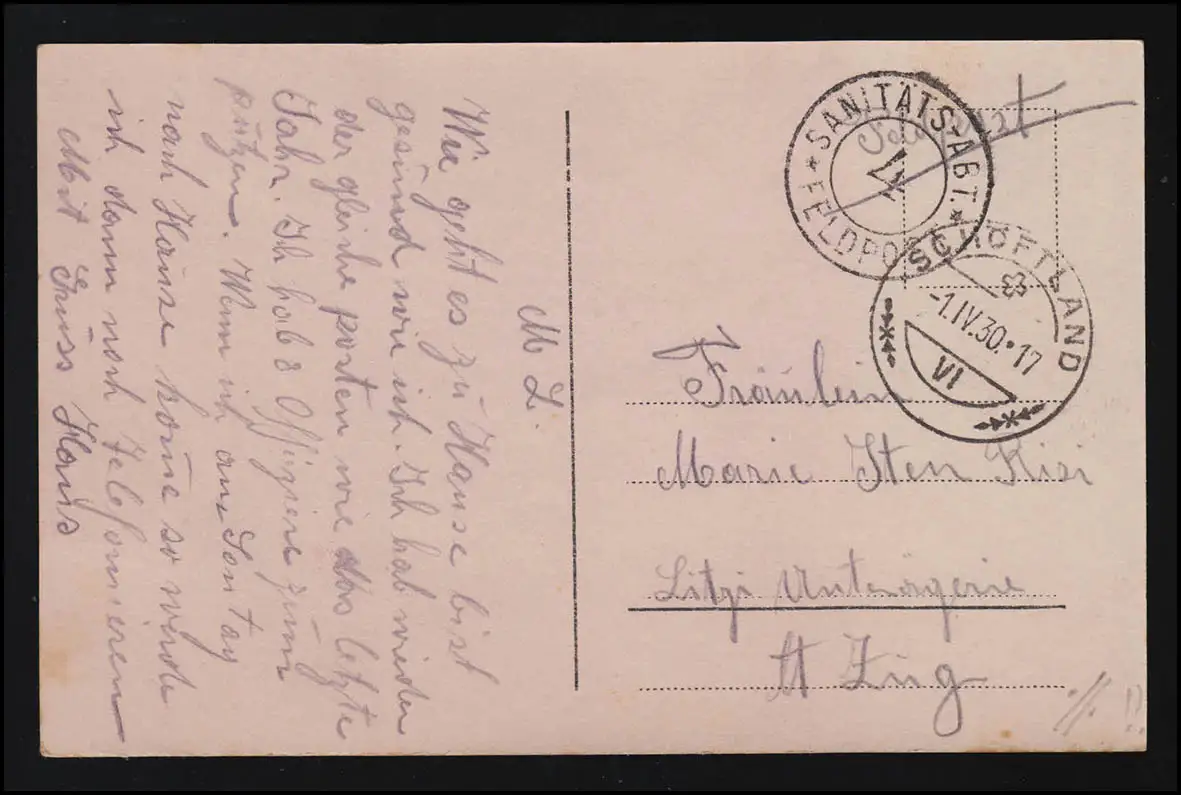 M L.
Wie geht es zu Hause bist
gesund wie ich. Ich hab wieder
der gleiche posten wie das letzte
Jahr. Ich hab 8 Offiziere zum
putzen. Wenn ich am Sontag
nach Hause kome so würde
ich dann noch telefonieren
Mit Gruss Hans
SANITÄTS-ABT.
FELDPO
SCHÖFTLAND
-1.IV.30.•17
VI
Fräulein
Marie Iten
Unterägerie
Kt Zug